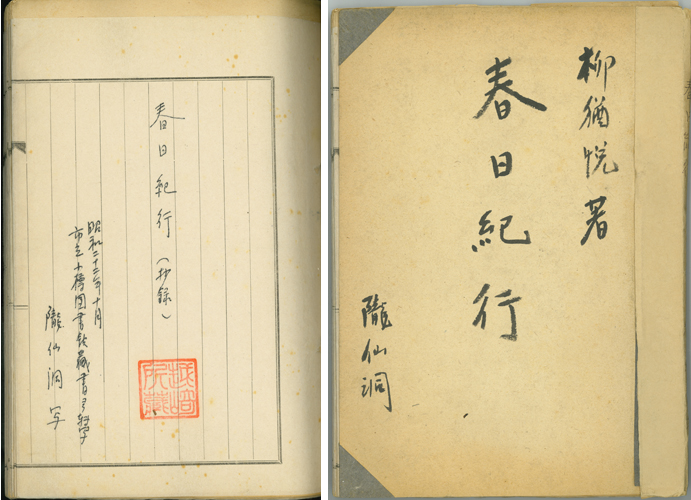 春日紀行(抄録)
昭和二十二年十月
市立小樽図書館蔵書ヨリ
隴仙洞写
越崎
所蔵
柳猶悦著
春日紀行
隴仙洞